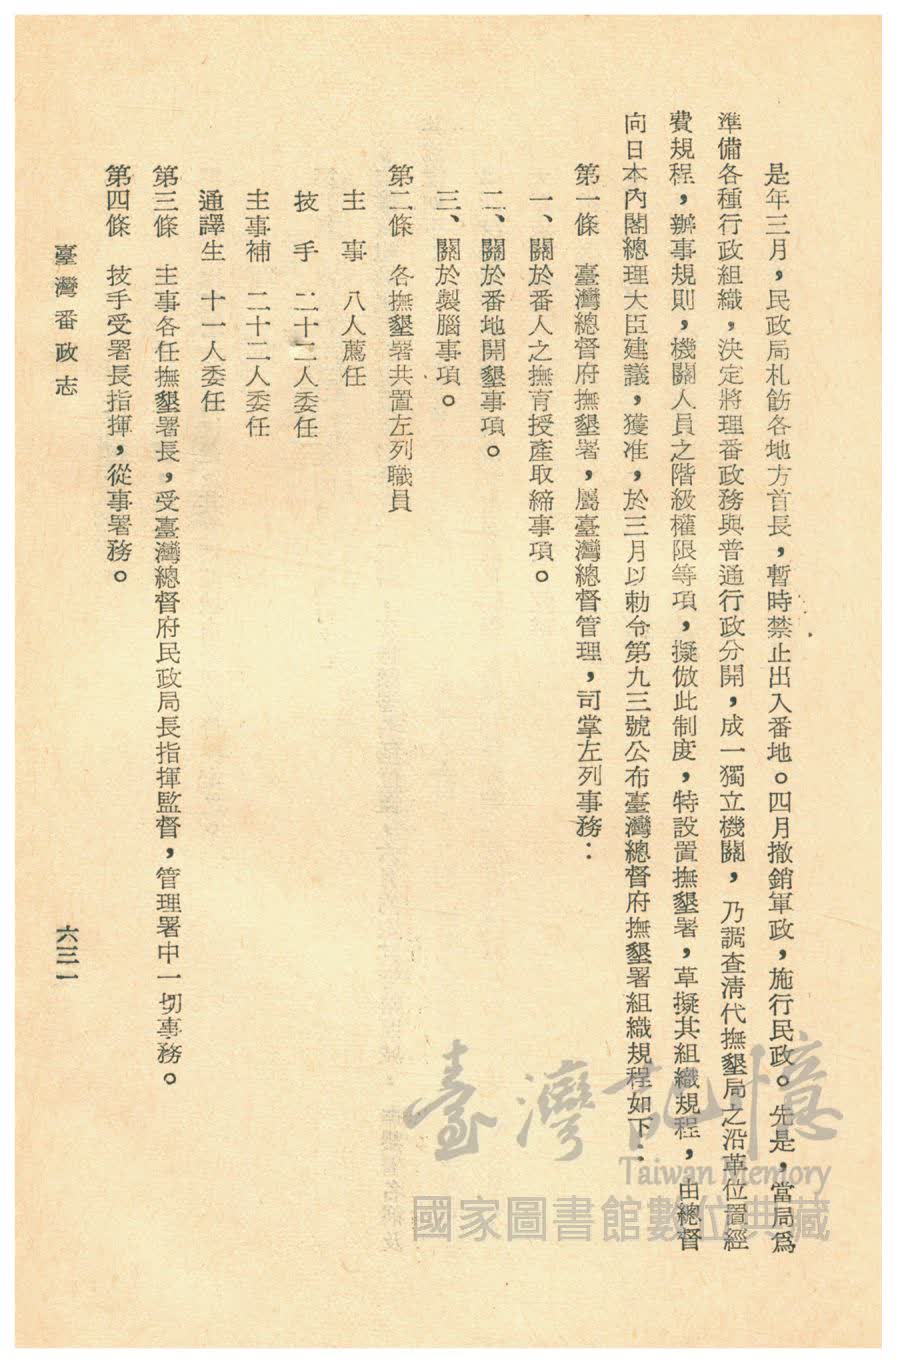 是年三月，民政局札飭各地方首長，暫時禁止出入番地。四月撤銷軍政，施行民政。先是，當局爲
準備各種行政組織，決定將理番政務與普通行政分開，成一獨立機關，乃調查淸代撫墾局之沿革位置經
費規程，辦事規則，機關人員之階級權限等項，擬倣此制度，特設置撫墾署，草擬其組織規程，由總督
向日本內閣總理大臣建議，獲准，於三月以勅令第九三號公布臺灣總督府撫墾署組織規程如下：
第一條　臺灣總督府撫墾署，屬臺灣總督管理，司掌左列事務：
一、關於番人之撫育授產取締事項。
二、關於番地開墾事項。
三、關於製腦事項。
第二條　各撫墾署共置左列職員
主　事　八人薦任
技　手　二十二人委任
主事補　二十二人委任
通譯生　十一人委任
第三條　主事各任撫墾署長，受臺灣總督府民政局長指揮監督，管理署中一切事務。
第四條　技手受署長指揮，從事署務。
臺灣番政志
六三一
臺灣記憶
Taiwan Memory
國家圖書館數位典藏